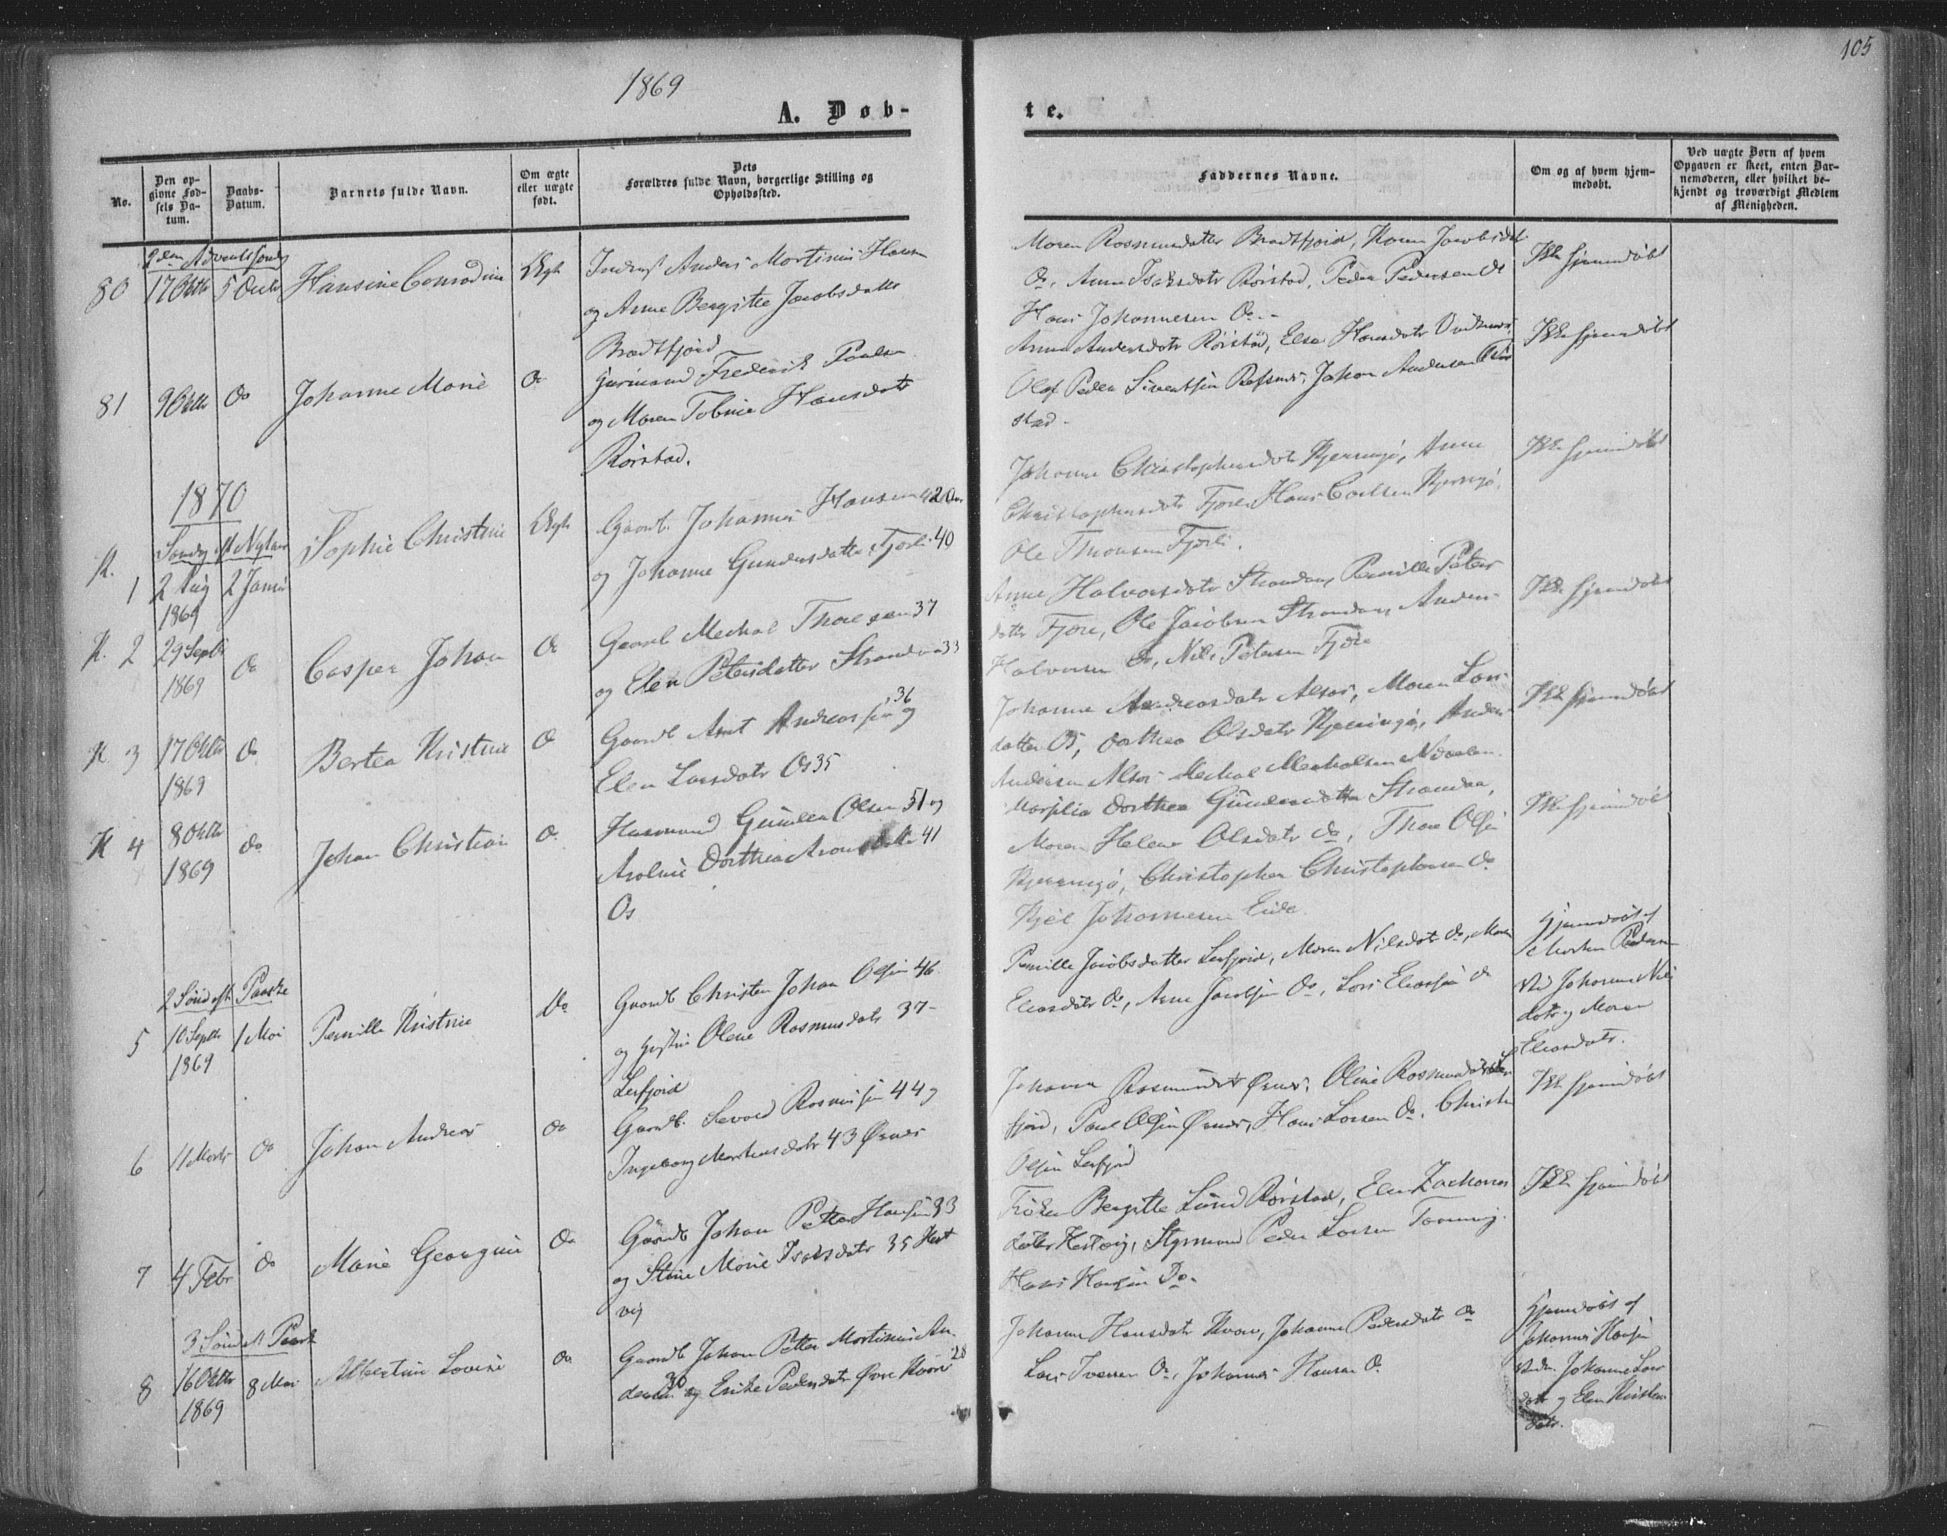 105
1869
A. Døb-
te.
No.
Den op-
givne Fød-
sels Da-
tum.
Daabs-
Datum.
Barnets fulde Navn.
Om ægte
eller uægte
født.
Dets
Forældres fulde Navn, borgerlige Stilling og
Opholdssted.
Faddernes Navne.
Om og af hvem hjem-
medøbt.
Ved uægte Børn af hvem
Opgaven er skeet, enten Bar-
nemoderen, eller hvilket be-
kjendt og troværdigt Medlem
af Menigheden.
80 17 Oktb 5 Decb Hansine Conradine Ægte
Anders Mortinus Hansen
og Anne Bergitte Jacobsdatter
Bradtfjord
Maren Rasmusdatter Bradtfjord, Karen Jacobsdat
Do, Anne Isaksdatr Rørstad, Peder Pedersen Do
Hans Johannesen Do.-
Ikke hjemmedøbt
81 9 Oktb Do Johanne Marie Do
Frederik Paulsen
og Maren Tobine Hansdatr
Rørstad.
Anne Andersdatr Rørstad, Elen Hansdatr
Olaf Peder Sivertsen Røsnes, Johan Andersen Rør
stad.
Ikke hjemmedøbt
1870
Søndag eft Nytaar
K. 1 2 Aug 1869 2 Januar Sophie Christine Ægte
Gaardb. Johannes Hansen 42 Aar
og Johanne Gundersdatter Fjærli 40
Johanne Christophersdatr Kjerringø, Anne
Christophersdatr Fjære, Hans Carlsen Kjerringø,
Ole Thomsen Fjærli.
Ikke hjemmedøbt
K. 2 29 Septb 1869 Do Casper Johan Do
Gaardb Mechal Thoresen 37
og Elen Petersdatter Strandaa 33
Anne Halvorsdatr Strandaa, Pernille Peters
datter Fjære, Ole Jacobsen Strandaa, Anders
Halvorsen Do, Nils Petersen Fjære
Ikke hjemmedøbt
K 3 17 Oktb 1869 Do Bertea Kristine Do
Gaardb Arnt Andreassen 36 og
Elen Larsdatr Os 35
Johanne Andreasdatr Alsos, Maren Lars-
datter Os, Dorthea Olsdatr Kjerringø, Anders
Andersen Alsos Mechal Mechalsen
Ikke hjemmedøbt
K 4 8 Oktb 1869 do Johan Christian Do
Huusmand Gunder Olsen 51 og
Dorthea 41
Os
Dorthea Gundersdatter Strandaa,
Maren Helene Olsdatr do, Thore Olsen
Kjerringø, Christopher Christophersen Do
Kjel Johannesen Eide
Ikke hjemmedøbt
2 Sønd eft Paaske
5 10 Septb 1869 1 Mai Pernille Kristine Do
Gaardb Christen Johan Olsen 46
og Olene Rasmusdatr 37-
Leifjord
Pernille Jacobsdatter Leifjord, Maren Nilsdatr do, Maren
Eliasdatr do, Arne Jacobsen Do, Lars Eliassen do
Hjemmedøbt af
Morten Pedersen
Ved Johanna Nils
datr og Maren
Eliasdatr.
6 11 Marts Do Johan Andreas Do
Gaardb. Sevald Rasmussen 44 og
Ingeborg Martinusdatr 43 Ørnes
Johanna Rasmusdatr Ørnes, Oline Rasmusdatr Lei
fjord, Paul Olsen Ørnes, Hans Larsen Do, Christen
Olsen Leifjord
Ikke hjemmedøbt
7 4 Febr Do Marie Georgine Do
Gaardb Johan Petter Hansen 33
og Stine Marie Isaksdatr 35 Hest
vig
Frøken Bergitte Lund Rørstad, Elen Zacharias
datter Hestvig, Styrmand Peder Larsen Tørring.
Hans Hansen Do.
Ikke hjemmedøbt
3 Sønd eft Paaske
8 16 Oktb 1869 8 Mai Albertine Lovise Do
Gaardb Johan Petter Mortinus An
dersen 30 og Erike Pedersdatr Øvre Kvarv 28
Johanne Hansdatr Kvarv, Johanne Pedersdatr do
Lars Iversen Do, Johannes Hansen Do
Hjemmedøbt af
Johannes Hansen
Ved Johanne Lars
datr og Elen Kristens
datr.